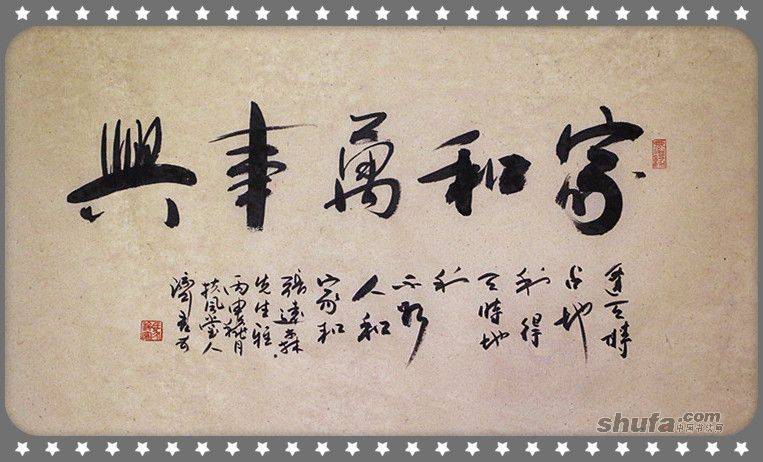 家和萬事興
天時
占地
利得
天時地
利
不如
人和
家和
張遠森
先生雅
丙申秋月
扶風堂人
shufa.com
中国书法网